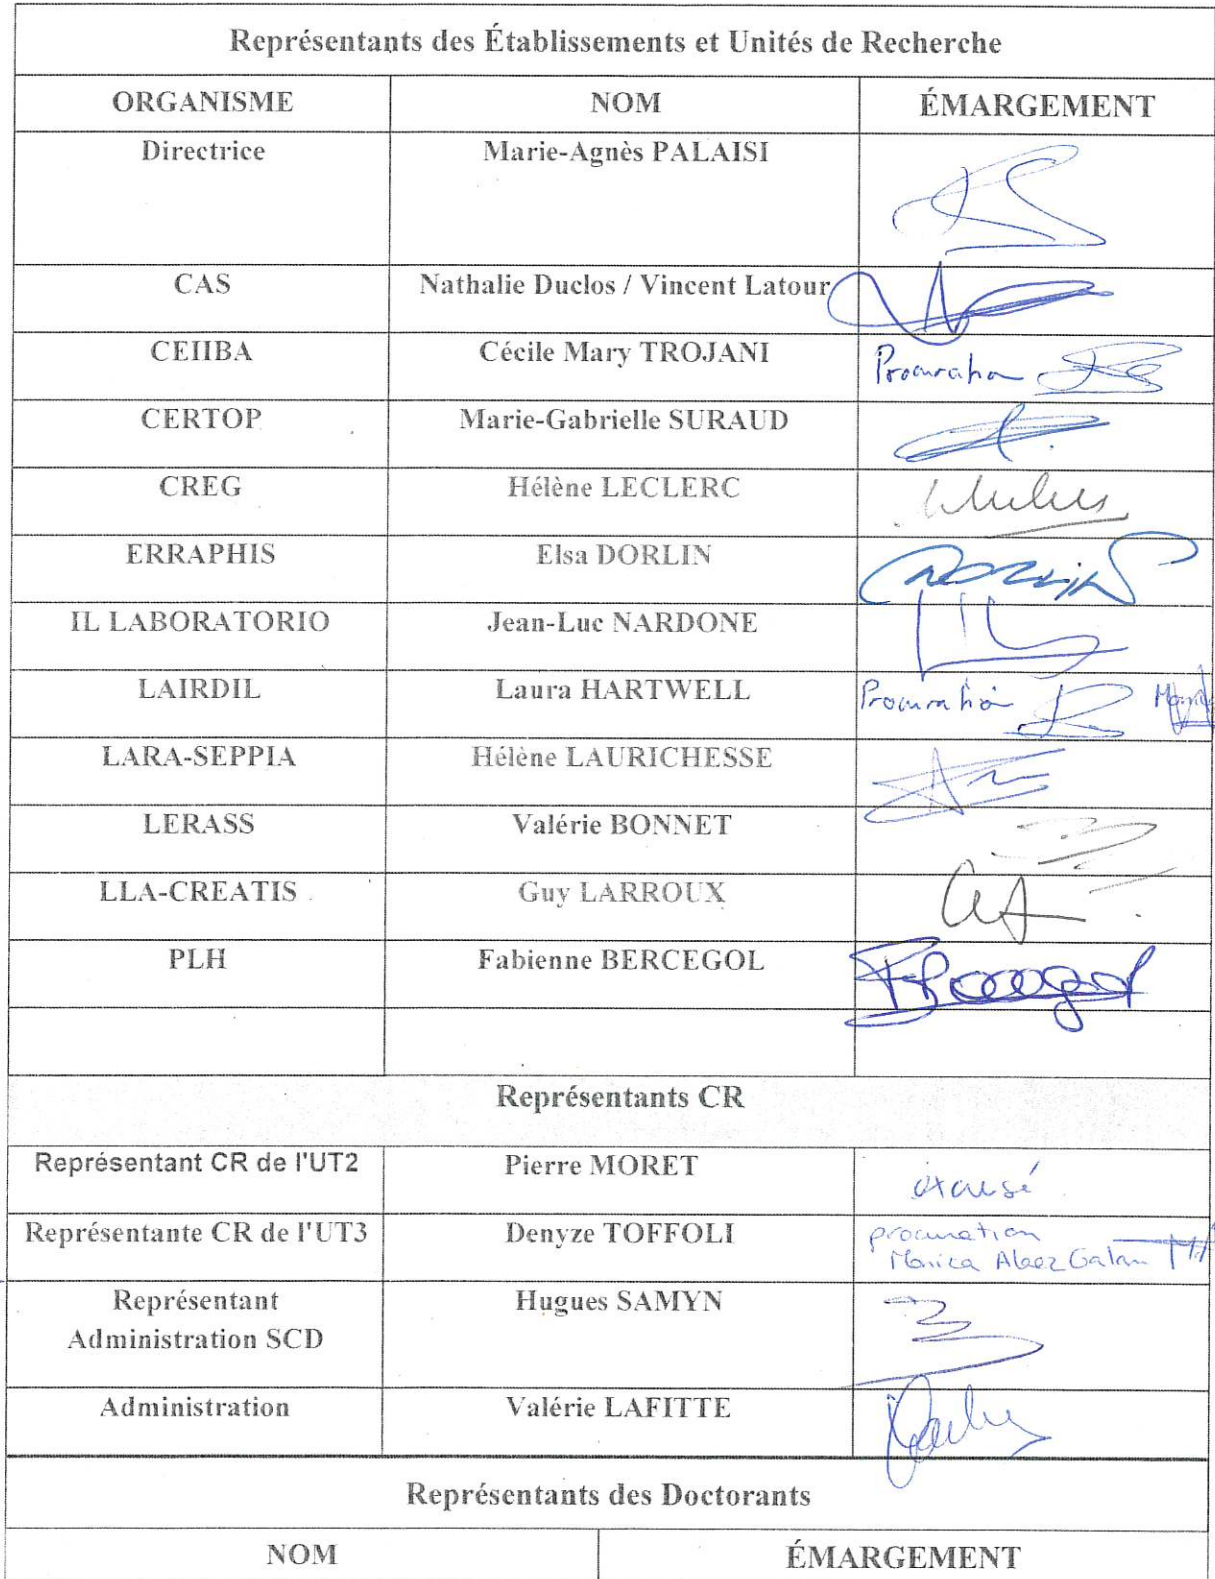 Représentants des Établissements et Unités de Recherche
ORGANISME NOM ÉMARGEMENT
Directrice Marie-Agnès PALAISI
CAS Nathalie Duclos / Vincent Latour
CEIIBA Cécile Mary TROJANI Procuration
CERTOP Marie-Gabrielle SURAUD
CREG Hélène LECLERC
ERRAPHIS Elsa DORLIN
IL LABORATORIO Jean-Luc NARDONE
LAIRDIL Laura HARTWELL Procuration
LARA-SEPPIA Hélène LAURICHESSE
LERASS Valérie BONNET
LLA-CREATIS Guy LARROUX
PLH Fabienne BERCEGOL
Représentants CR
Représentant CR de l'UT2 Pierre MORET excusé
Représentante CR de l'UT3 Denyze TOFFOLI procuration
Monica Galan
Représentant Hugues SAMYN
Administration SCD
Administration Valérie LAFITTE
Représentants des Doctorants
NOM ÉMARGEMENT